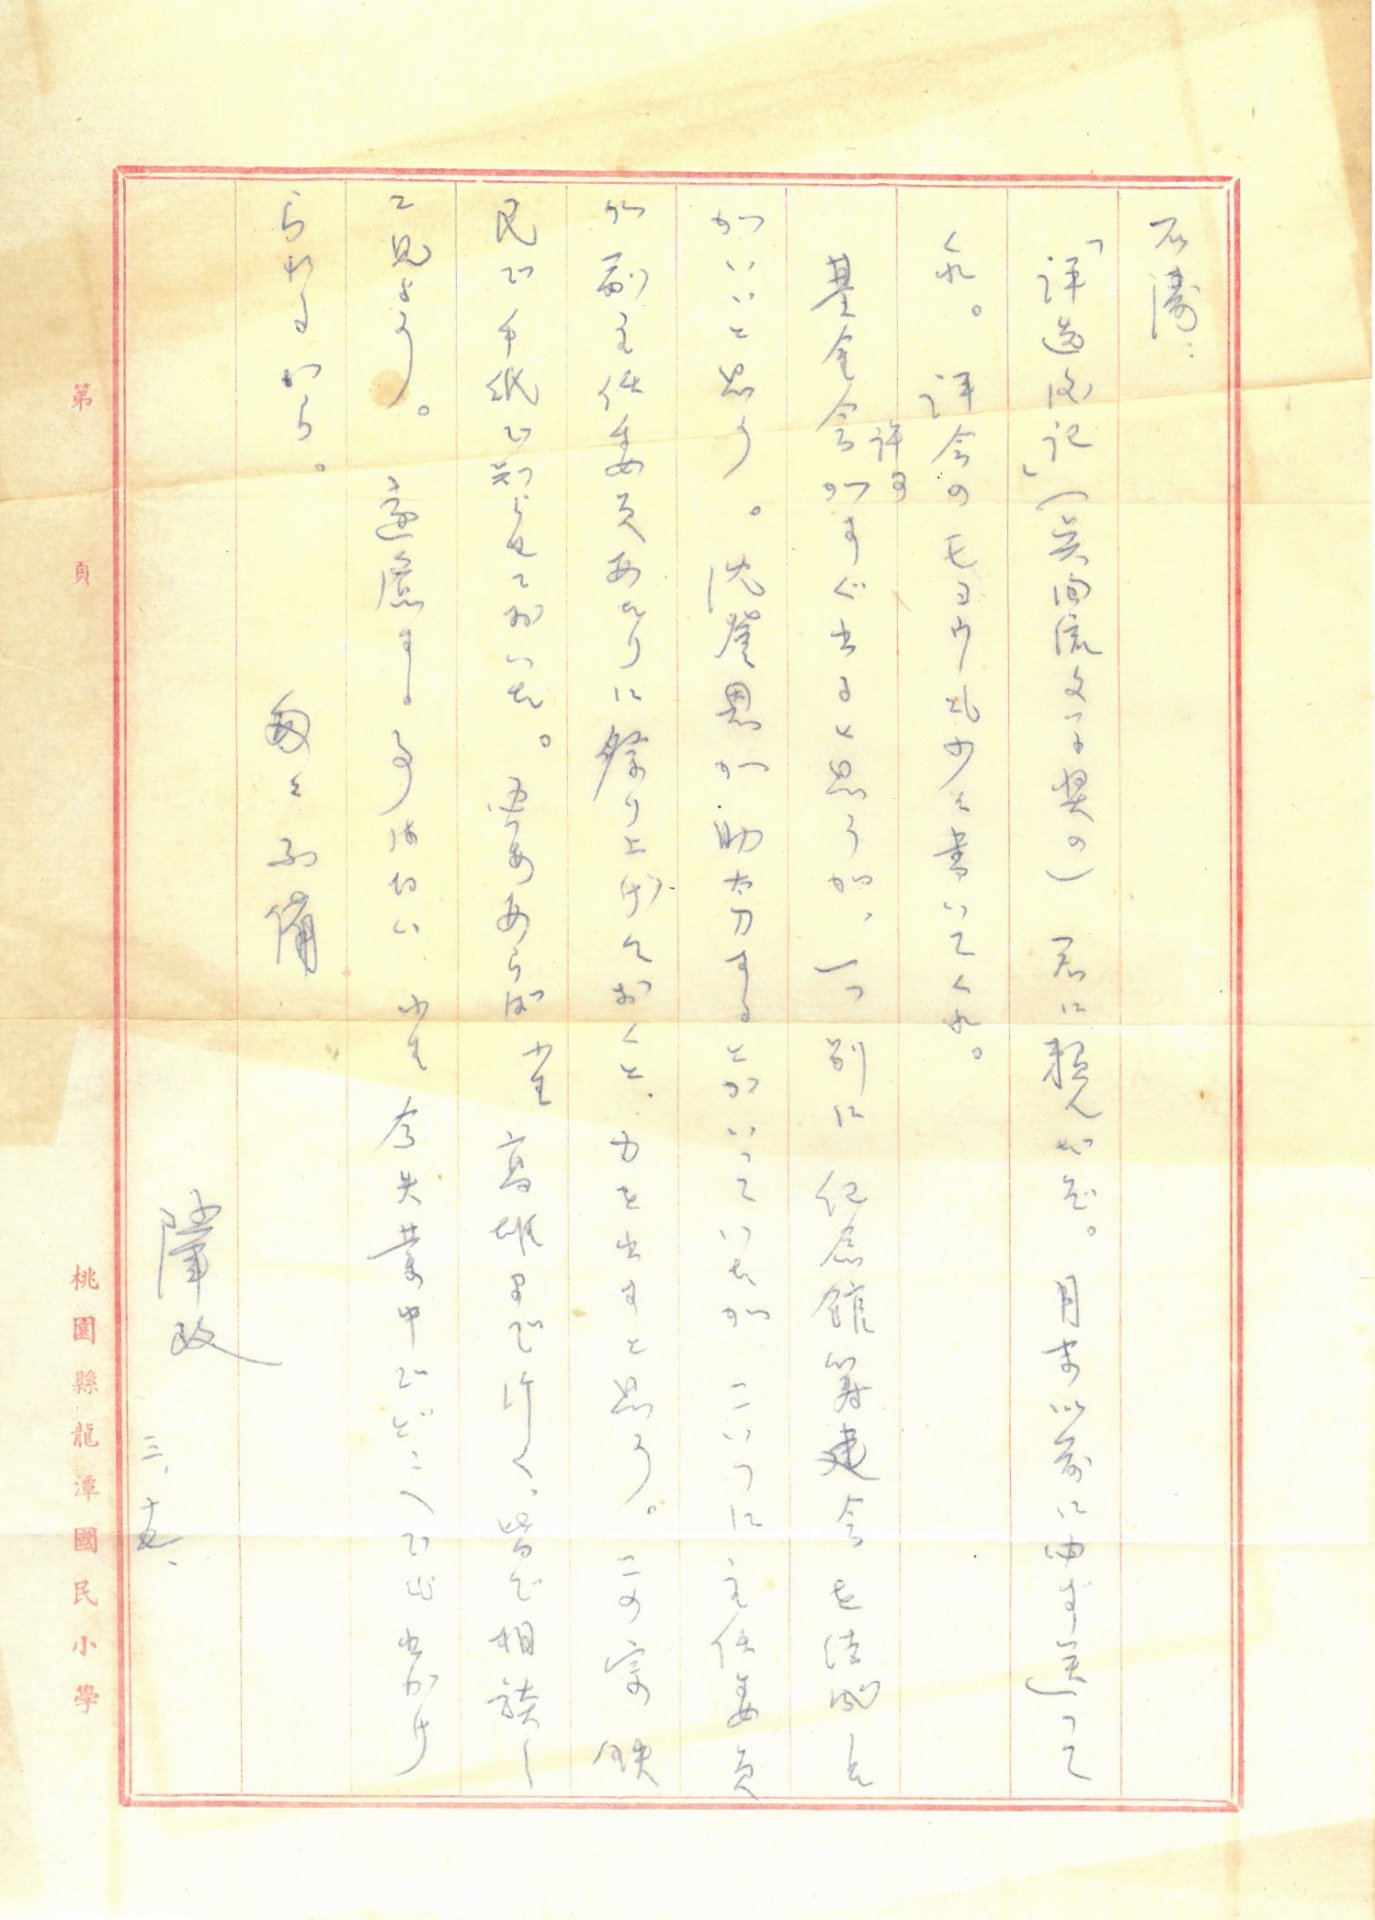 石濤：
「評選後記」（吳濁流文学奨の）君に頼んだぞ。月末以前に由ず送って
くれ。評会のモヨウも少々書いてくれ。
許可
基金会がすぐ出ると思うが、一つ別に紀念館籌建会を結成した
がいいと思う。沈登恩が助力するとかいっていたが こいつに主任委員
か副主任委員あたりに祭り上げておくと、力を出すと思う。この旨 鉄
民に手紙で知らせておいた。要あらば 小生 高雄まで行く、皆で相談し
て見よう。遠慮する事はない、小生 今失業中でどこへでも出かけ
られるから。
匆々不備
肇政
三、十五、
第 頁
桃園縣龍潭國民小學